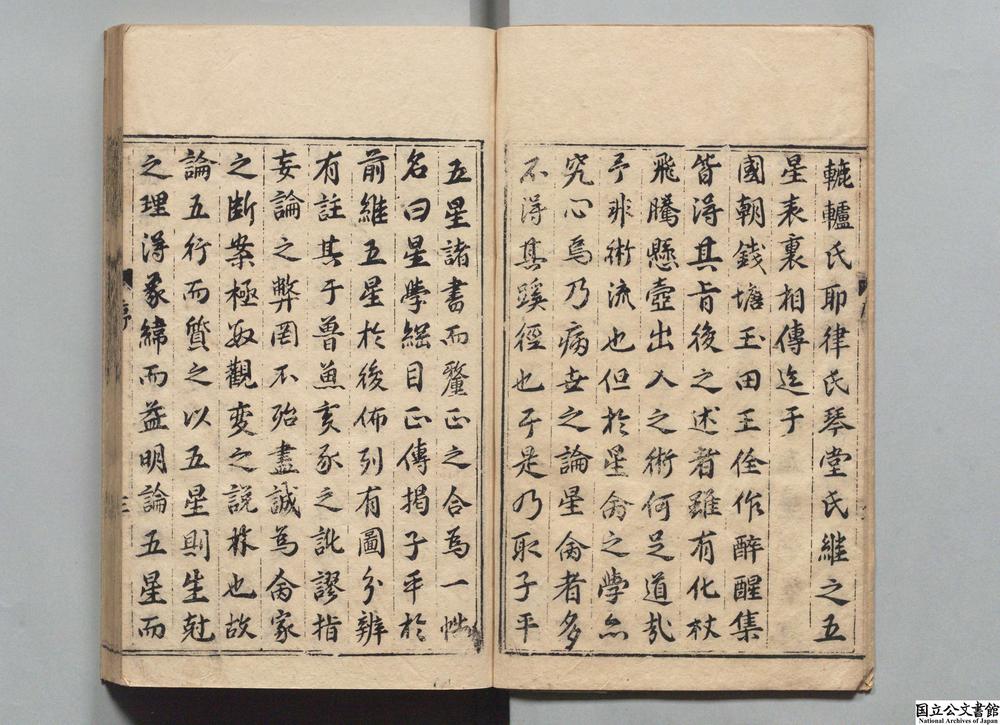 轆轤氏耶律氏琴堂氏継之五
星表裏相傳迄于
國朝錢塘玉田王佺作醉醒集
皆淂其㫖後之述者雖有化杖
飛騰懸壺出入之術何足道㢤
予非術流也但於星禽之學亦
究心焉乃病世之論星禽者多
不淂其蹊徑也于是乃取子平
五星諸書而釐正之合為一帙
名曰星學綱目正傳揭子平於
前継五星於後佈列有圖分辨
有註其于魯魚亥豕之訛謬指
妄論之弊罔不殆盡誠為禽家
之断案極数觀變之說林也故
論五行而質之以五星則生尅
之理淂彖緯而益明論五星而
序
三
国立公文書館
National Archives of Japan